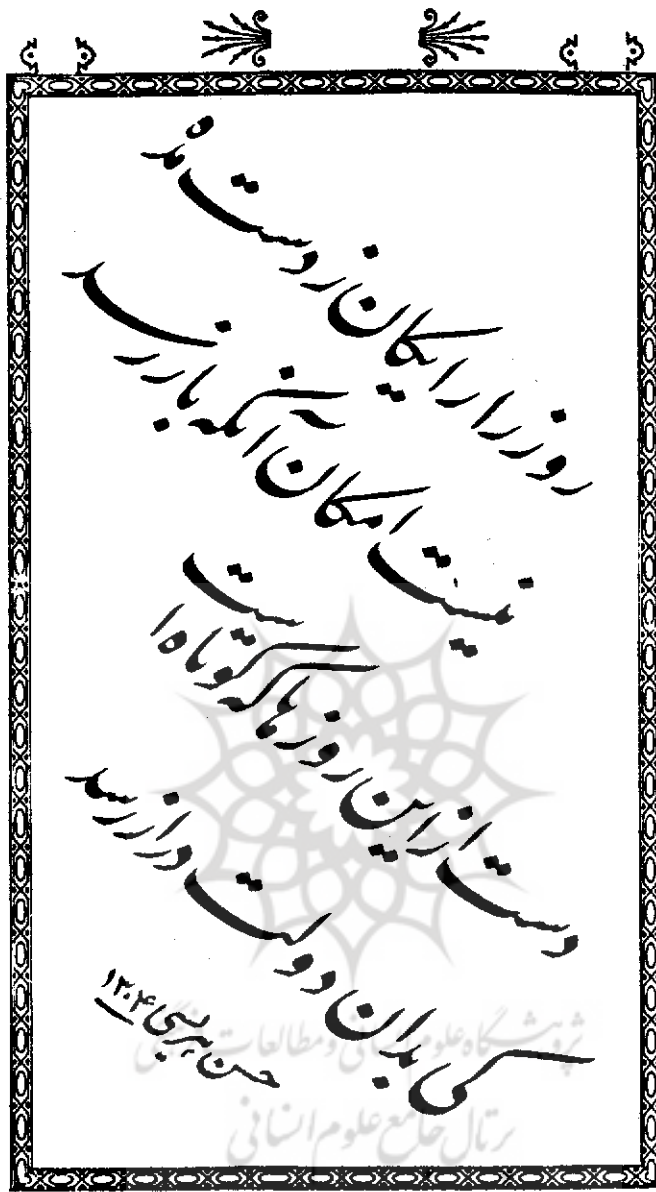 روز را رایگان ز دست مده
نیست امکان آنکه باز رسد
دست از این روزها که کوتاه است
کی بدان دولت دراز رسد
حسن هریسی ۱۳۰۴
پژوهشگاه علوم انسانی و مطالعات فرهنگی
پرتال جامع علوم انسانی